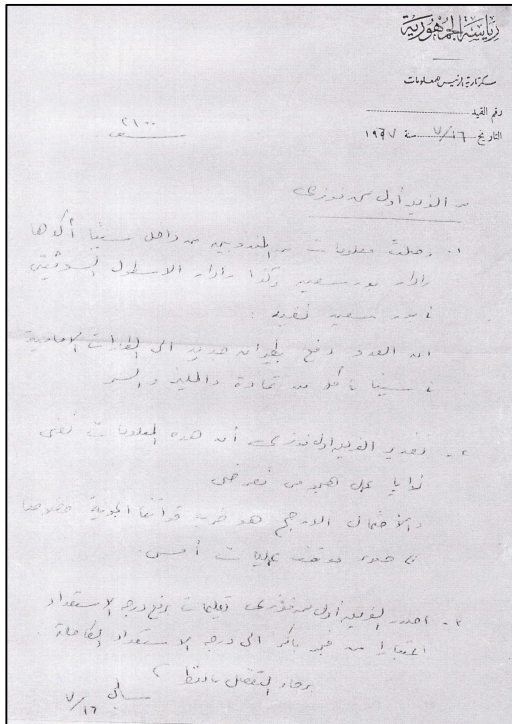 رياسة الجمهورية
سكرتارية الرئيس للمعلومات
رقم القيد
التاريخ ١٦/٧ سنة ١٩٦٧
٢١٠٠
من الفريق أول محمد فوزى
١- وصلت معلومات من المندوبين من داخل سينا أكدها
رادار بورسعيد وكذا رادار الاسطول السوفيتى
فى بور سعيد تفيد :
ان العدو دفع بطيران جديد الى المطارات الأمامية
فى سينا فى كل من تمادة والمليز والسر
٢- تقدير الفريق أول فوزى أن هذه المعلومات تعنى
نوايا عمل هجومى تعرضى
والاحتمال الارجح هو ضرب قواتنا الجوية خصوصا
فى ضوء موقف عمليات أمس.
٣- اصدر الفريق أول محمد فوزى تعليمات برفع درجة الاستعداد
اعتبارا من فجر باكر الى درجة الاستعداد الكاملة
برجاء التفضل بالنظر
سامى
١٦/٧